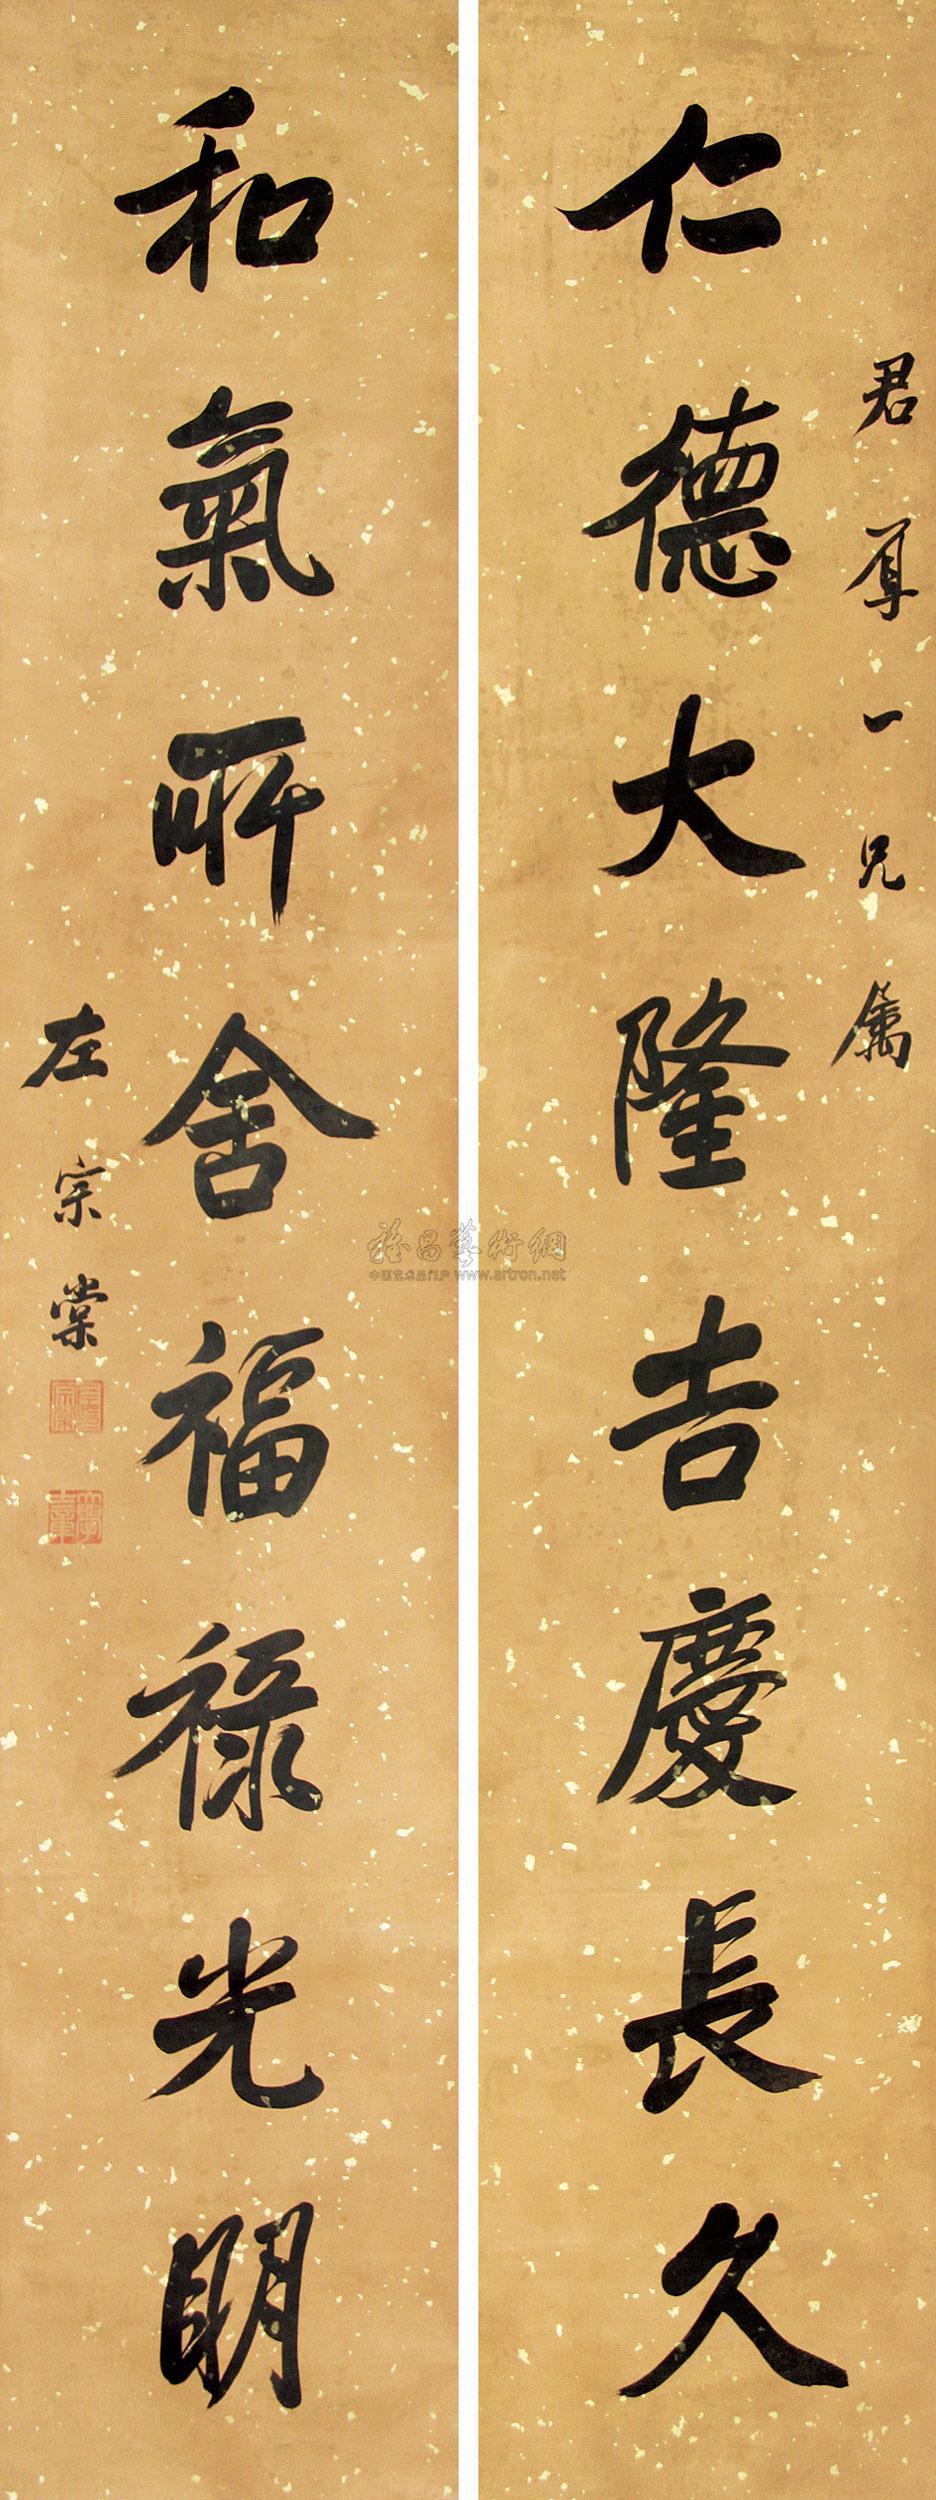 君厚一兄屬
仁德大隆吉慶長久
和氣所舍福祿光明
左宗棠
雅昌藝術網
中国艺术品门户 www.artron.net